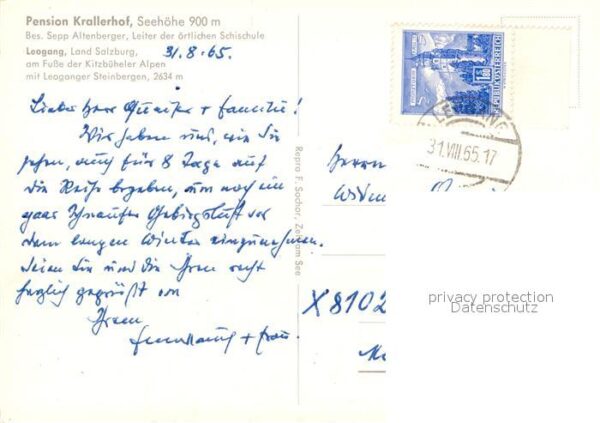 Pension Krallerhof, Seehöhe 900 m
Bes. Sepp Altenberger, Leiter der örtlichen Schischule
Leogang, Land Salzburg,
am Fuße der Kitzbüheler Alpen
mit Leoganger Steinbergen, 2634 m
31.8.65.
Lieber Herr + Familie!
Wir haben uns, wie Sie
sehen, auch für 8 Tage auf
die Reise begeben, um noch ein
paar Schnaufer Gebirgsluft vor
dem langen Winter einzunehmen.
Seien Sie und die Ihren recht
herzlich gegrüßt von
Ihrem
+ Frau.
Repro F. Sochor, Zell am See
REPUBLIK ÖSTERREICH
S 1.80
LEOGANG
31.VIII.65.17
Herrn
X8102
privacy protection
Datenschutz